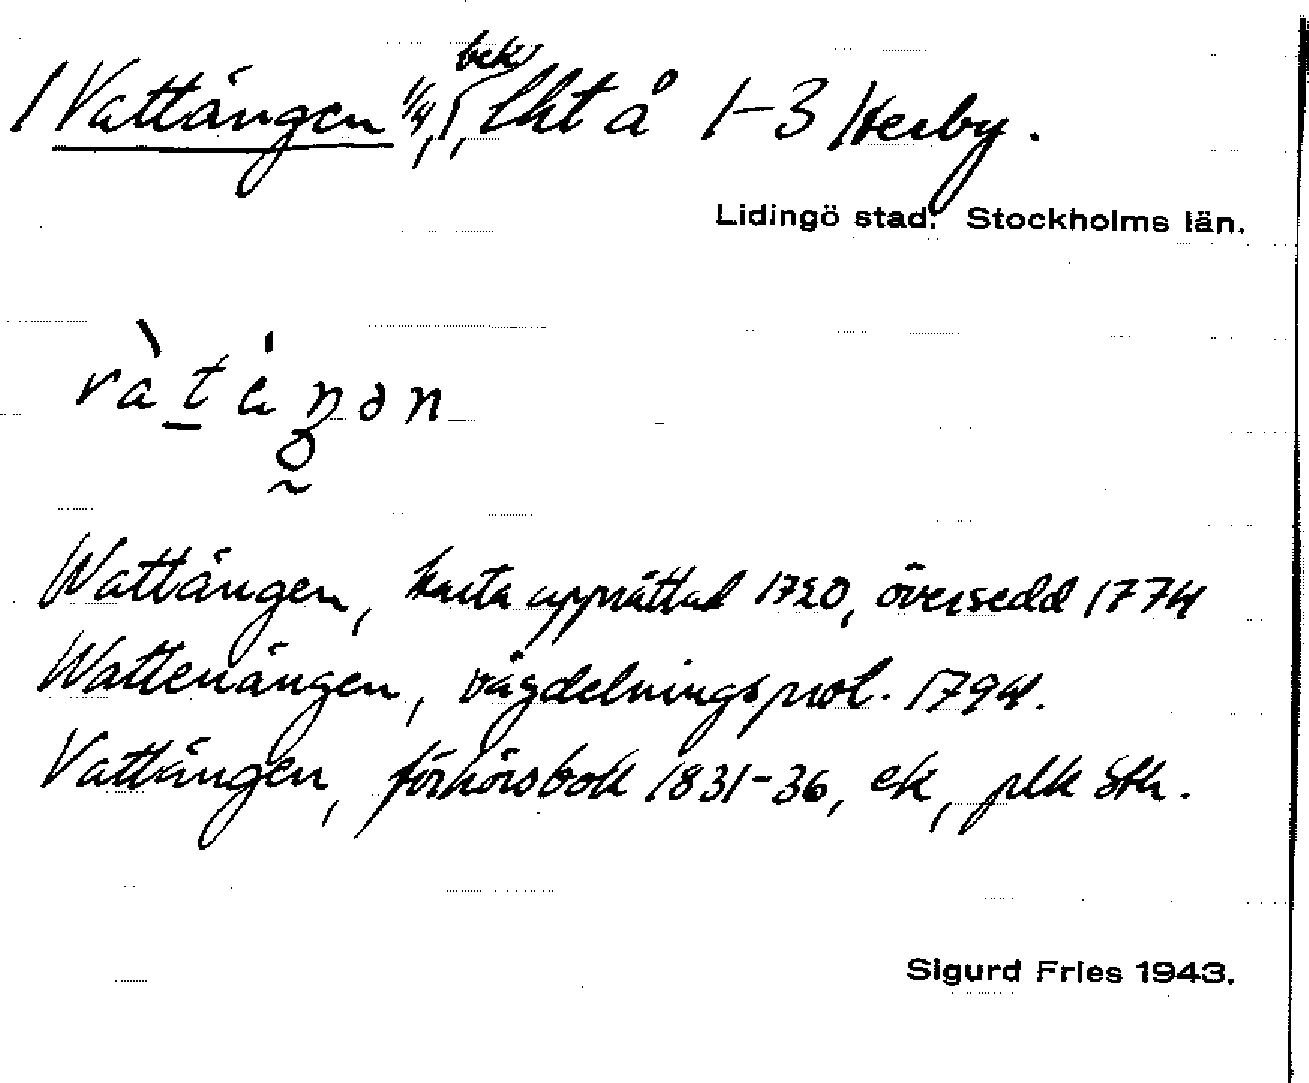 bek
1 Vattängen 1/4, lht å 1-3 Hersby.
Lidingö stad. Stockholms län.
vàtäŋən
Wattängen, karta upprättad 1720, översedd 1774
Wattenängen, vägdelningsprot. 1794.
Vattängen, förhörsbok 1831-36, ek, plk Sth.
Sigurd Fries 1943.